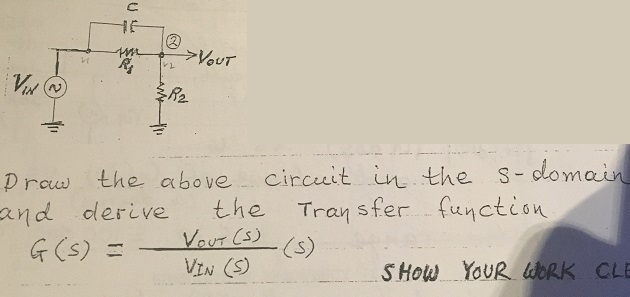 C
②
VOUT
R1
V1
V2
VIN
R2
Draw the above circuit in the s-domain
and derive the Transfer function
G(s) = VOUT(S) / VIN(S) (s)
SHOW YOUR WORK CLE